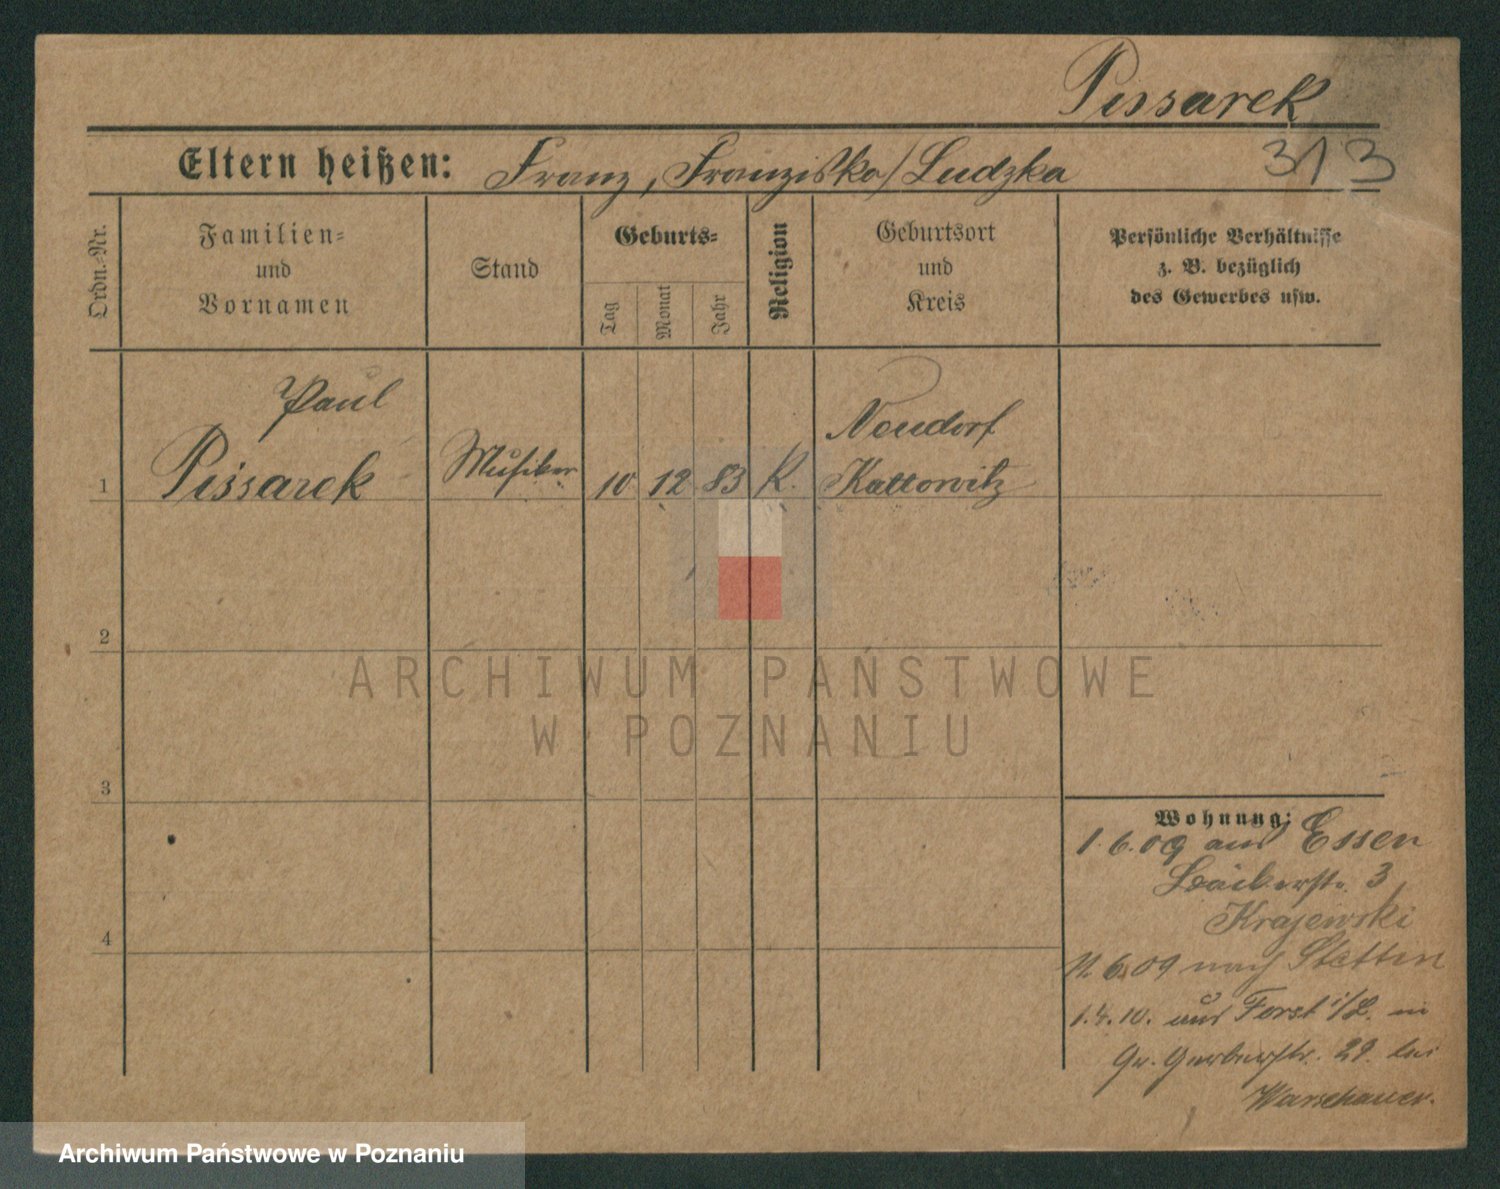 Pissarek
Eltern heißen: Franz, Franziska / Ludzka
313
Ordn.-Nr.
Familien-
und
Vornamen
Stand
Geburts-
Tag
Monat
Jahr
Religion
Geburtsort
und
Kreis
Persönliche Verhältnisse
z. B. bezüglich
des Gewerbes usw.
Paul
1 Pissarek Musiker 10 12 83 K. Neudorf
Kattowitz
2
3
4
Wohnung:
1.6.09 aus Essen
Bäckerstr. 3
Krajewski
6.09 nach Stettin
1.4.10. aus Forst i/L. in
Gr. Gerberstr. 29. bei
Warschauer.
ARCHIWUM PAŃSTWOWE
W POZNANIU
Archiwum Państwowe w Poznaniu